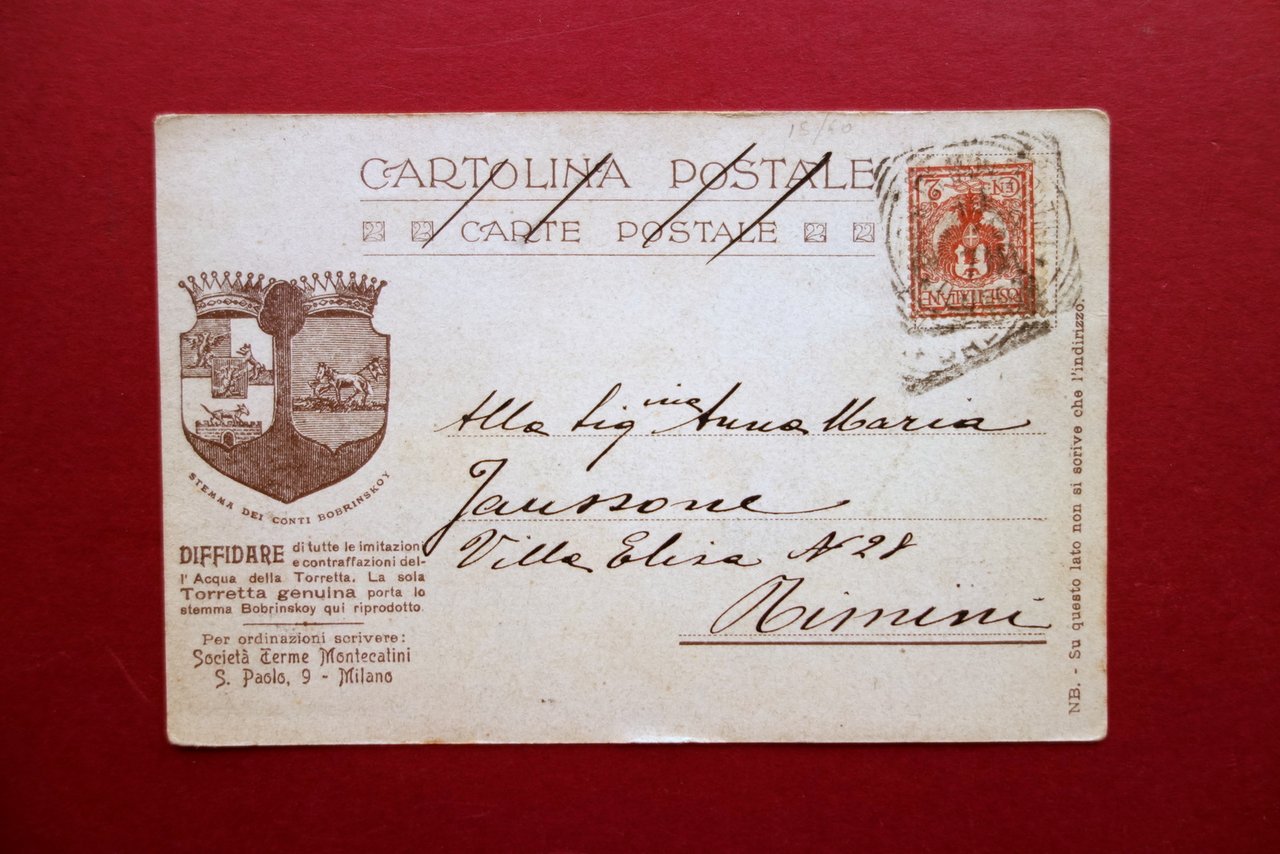 15/60
CARTOLINA POSTALE
CARTE POSTALE
2
POSTE ITALIANE
STEMMA DEI CONTI BOBRINSKOY
DIFFIDARE di tutte le imitazioni
e contraffazioni del-
l'Acqua della Torretta. La sola
Torretta genuina porta lo
stemma Bobrinskoy qui riprodotto
Per ordinazioni scrivere:
Società Terme Montecatini
S. Paolo, 9 - Milano
Alla Sig ina Anna Maria
Janssone
Villa Elisa N 28
Rimini
NB. - Su questo lato non si scrive che l'indirizzo.